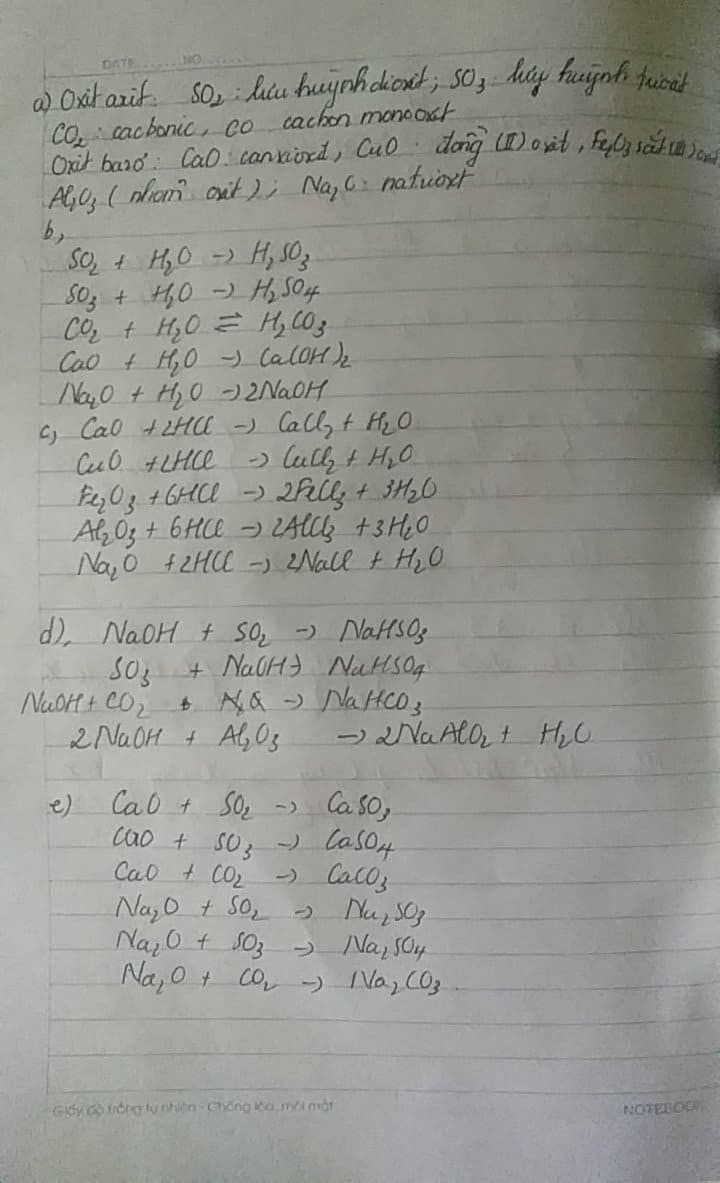 DATE.......NO.......
a) Oxit axit: SO₂: lưu huỳnh đioxit; SO₃:
CO₂: cacbonic, CO cacbon monooxit
Oxit bazơ: CaO: canxioxit, CuO: đồng (II) oxit, Fe₂O₃ sắt (III) oxit
Al₂O₃ (nhôm oxit); Na₂O: natrioxit
b,
SO₂ + H₂O -> H₂SO₃
SO₃ + H₂O -> H₂SO₄
CO₂ + H₂O ⇌ H₂CO₃
CaO + H₂O -> Ca(OH)₂
Na₂O + H₂O -> 2NaOH
c, CaO + 2HCl -> CaCl₂ + H₂O
CuO + 2HCl -> CuCl₂ + H₂O
Fe₂O₃ + 6HCl -> 2FeCl₃ + 3H₂O
Al₂O₃ + 6HCl -> 2AlCl₃ + 3H₂O
Na₂O + 2HCl -> 2NaCl + H₂O
d), NaOH + SO₂ -> NaHSO₃
SO₃ + NaOH -> NaHSO₄
NaOH + CO₂ -> NaHCO₃
2NaOH + Al₂O₃ -> 2NaAlO₂ + H₂O
e) CaO + SO₂ -> CaSO₃
CaO + SO₃ -> CaSO₄
CaO + CO₂ -> CaCO₃
Na₂O + SO₂ -> Na₂SO₃
Na₂O + SO₃ -> Na₂SO₄
Na₂O + CO₂ -> Na₂CO₃.
Giấy độ trắng tự nhiên - Chống lóa, mỏi mắt NOTEBOOK